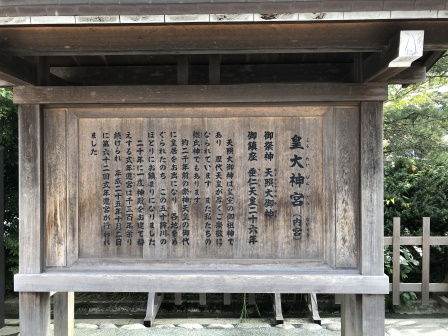 皇大神宮（内宮）
御祭神　天照大御神
御鎮座　垂仁天皇二十六年
天照大御神は皇室の御祖神で
あり　歴代天皇が厚くご崇敬に
なられています　また私たちの
総氏神でもあります
約二千年前の崇神天皇の御代
に皇居をお出になり　各地をめ
ぐられたのち　この五十鈴川の
ほとりにお鎮まりになりました
二十年に一度　神殿をお建替
えする式年遷宮は千三百年余り
続けられ　平成二十五年十月二日
に第六十二回式年遷宮が行われ
ました